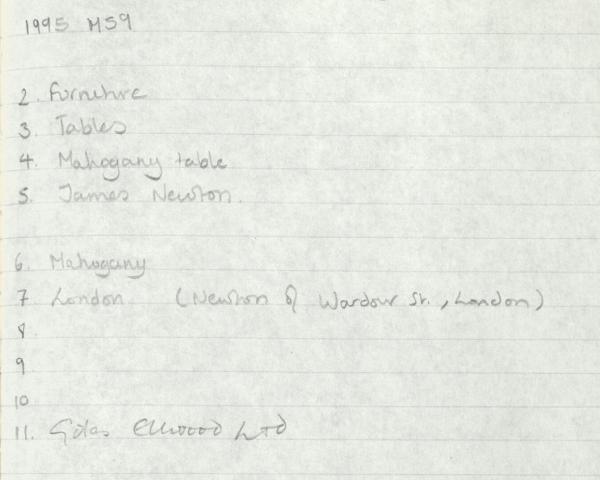 1995 MS9
2. Furniture
3. Tables
4. Mahogany table
5. James Newton.
6. Mahogany
7 London (Newton of Wardour St., London)
8
9
10
11. Giles Ellwood Ltd